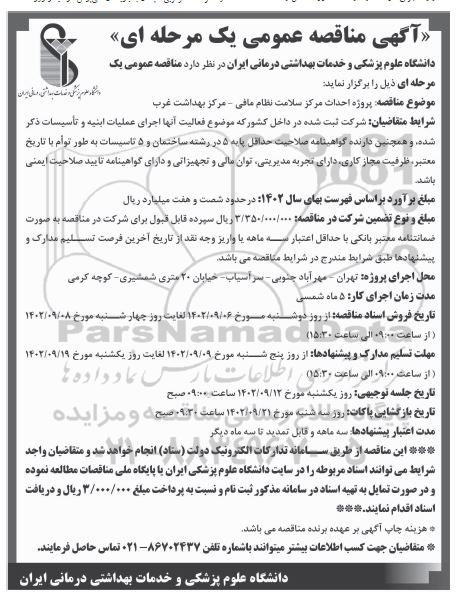 «آگهی مناقصه عمومی یک مرحله ای»
دانشگاه علوم پزشکی و خدمات بهداشتی درمانی ایران
دانشگاه علوم پزشکی و خدمات بهداشتی درمانی ایران در نظر دارد مناقصه عمومی یک
مرحله ای ذیل را برگزار نماید:
موضوع مناقصه: پروژه احداث مرکز سلامت نظام مافی - مرکز بهداشت غرب
شرایط متقاضیان: شرکت ثبت شده در داخل کشور که موضوع فعالیت آنها اجرای عملیات ابنیه و تأسیسات ذکر
شده، و همچنین دارنده گواهینامه صلاحیت حداقل پایه ۵ در رشته ساختمان و ۵ تاسیسات به طور توأم با تاریخ
معتبر، ظرفیت مجاز کاری، دارای تجربه مدیریتی، توان مالی و تجهیزاتی و دارای گواهینامه تایید صلاحیت ایمنی
باشد.
مبلغ برآورد براساس فهرست بهای سال ۱۴۰۲: در حدود شصت و هفت میلیارد ریال
مبلغ و نوع تضمین شرکت در مناقصه: ۳/۳۵۰/۰۰۰/۰۰۰ ریال سپرده قابل قبول برای شرکت در مناقصه به صورت
ضمانتنامه معتبر بانکی با حداقل اعتبار سه ماهه یا واریز وجه نقد از تاریخ آخرین فرصت تسلیم مدارک و
پیشنهادها طبق شرایط مندرج در شرایط مناقصه می باشد.
محل اجرای پروژه: تهران - مهرآباد جنوبی- سرآسیاب- خیابان ۲۰ متری شمشیری- کوچه کرمی
مدت زمان اجرای کار: ۵ ماه شمسی
تاریخ فروش اسناد مناقصه: از روز دوشنبه مورخ ۱۴۰۲/۰۹/۰۶ لغایت روز چهار شنبه مورخ ۱۴۰۲/۰۹/۰۸
( از ساعت ۰۹:۰۰ الی ساعت ۱۵:۳۰)
مهلت تسلیم مدارک و پیشنهادها: از روز پنج شنبه مورخ ۱۴۰۲/۰۹/۰۹ لغایت روز یکشنبه مورخ ۱۴۰۲/۰۹/۱۹
(از ساعت ۰۹:۰۰ الی ساعت ۱۵:۳۰)
تاریخ جلسه توجیهی: روز یکشنبه مورخ ۱۴۰۲/۰۹/۱۲ ساعت ۰۹:۰۰ صبح
تاریخ بازگشایی پاکات: روز سه شنبه مورخ ۱۴۰۲/۰۹/۲۱ ساعت ۰۹:۳۰ صبح
مدت اعتبار پیشنهادها: سه ماهه و قابل تمدید تا سه ماه دیگر
*** این مناقصه از طریق سامانه تدارکات الکترونیک دولت (ستاد) انجام خواهد شد و متقاضیان واجد
شرایط می توانند اسناد مربوطه را در سایت دانشگاه علوم پزشکی ایران یا پایگاه ملی مناقصات مطالعه نموده
و در صورت تمایل به تهیه اسناد در سامانه مذکور ثبت نام و نسبت به پرداخت مبلغ ۳/۰۰۰/۰۰۰ ریال و دریافت
اسناد اقدام نمایند.***
* هزینه چاپ آگهی بر عهده برنده مناقصه می باشد.
* متقاضیان جهت کسب اطلاعات بیشتر میتوانند باشماره تلفن ۸۶۷۰۲۴۳۷-۰۲۱ تماس حاصل فرمایند.
دانشگاه علوم پزشکی و خدمات بهداشتی درمانی ایران
ParsNamadData